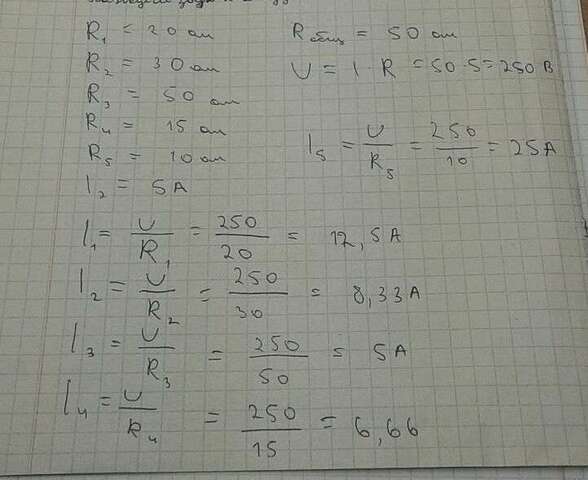 R₁ = 20 ом
R₂ = 30 ом
R₃ = 50 ом
R₄ = 15 ом
R₅ = 10 ом
I₂ = 5A
Rобщ = 50 ом
U = I · R = 50 · 5 = 250 В
I₅ = U/R₅ = 250/10 = 25A
I₁ = U/R₁ = 250/20 = 12,5A
I₂ = U/R₂ = 250/30 = 8,33A
I₃ = U/R₃ = 250/50 = 5A
I₄ = U/R₄ = 250/15 = 6,66